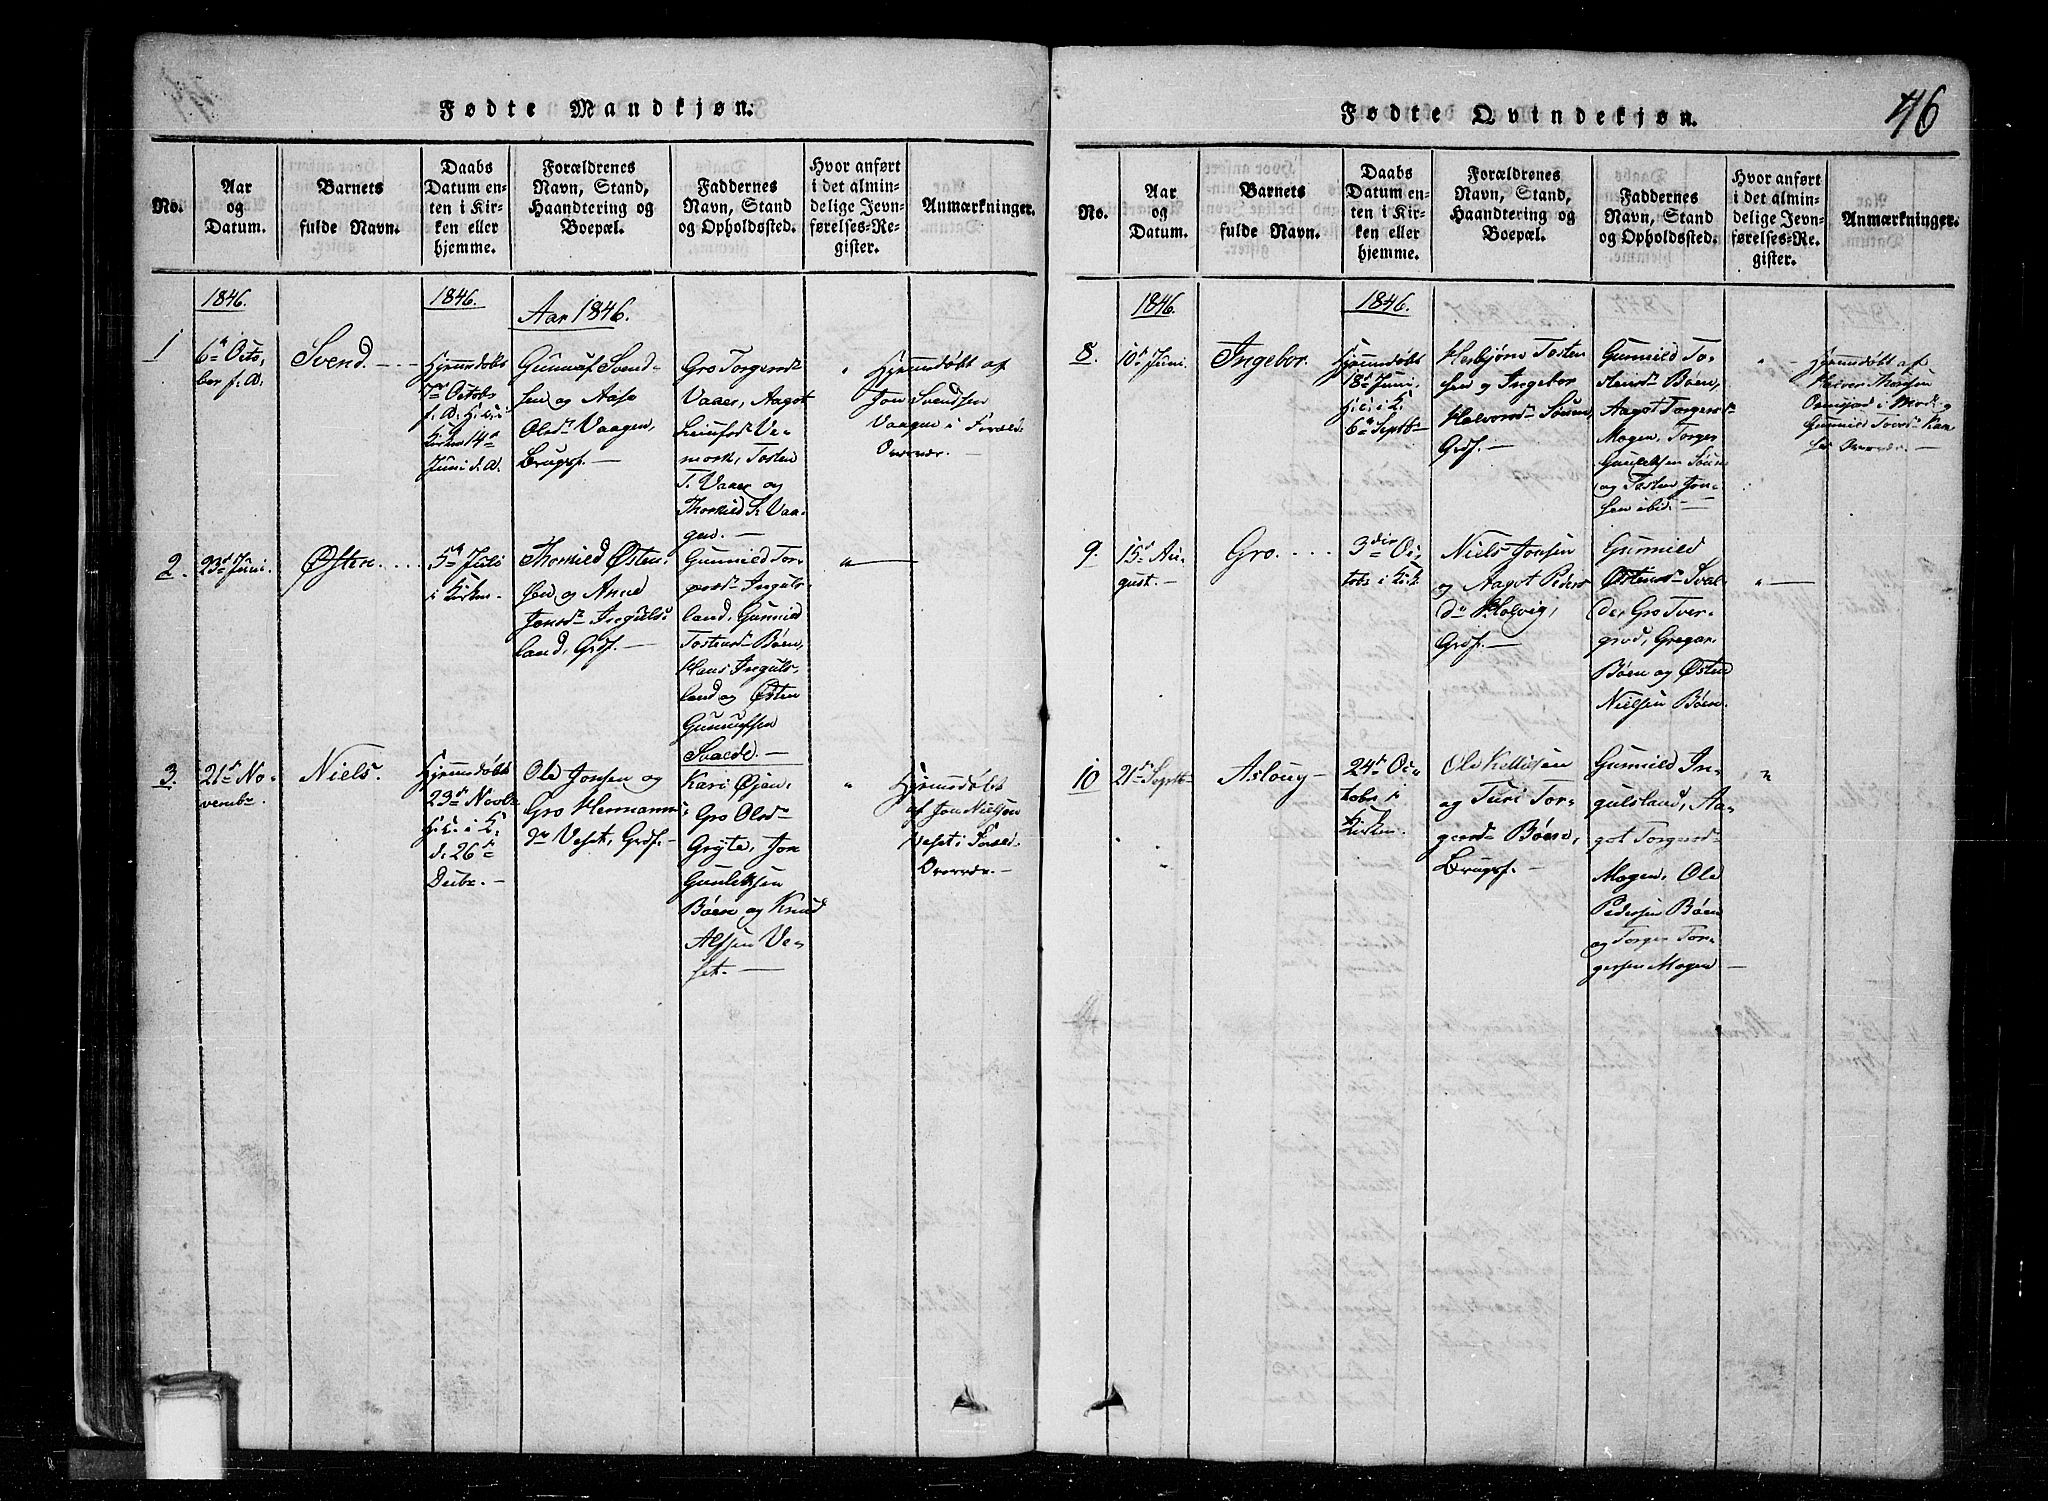 Fødte Mandkjøn.
No.
Aar
og
Datum.
Barnets
fulde Navn.
Daabs
Datum en-
ten i Kir-
ken eller
hjemme.
Forældrenes
Navn, Stand,
Haandtering og
Boepæl.
Faddernes
Navn, Stand
og Opholdssted.
Hvor anført
i det almin-
delige Jevn-
førelses-Re-
gister.
Anmærkninger.
1846.
1846.
Aar 1846.
1
6te Octo-
ber f. A.
Svend.
Hjemmdøbt
7de Octob.
f. A.
Kirken 14de
Juni d. A.
Gunnuf Svend-
sen og Aase
Olsdr Vaagen,
Brugsf.
Gro Torgersdr
Vaaer, Aagot
Leiufsdr Ve-
mork, Tosten
T. Vaaer og
Thorkild S. Vaa-
gen.
"
Hjemmdøbt af
Jon Svendsen
Vaagen i Foræld.
Overvær.
2.
23de Juni.
Østen.
5te Juli
i Kirken.
Thorkild Østen-
sen og Anne
Jonsdr Inguls-
land, Grdf.
Gunnild Tor-
geresdr Inguls-
land, Gunnild
Tostensdr Bøen,
Hans Inguls-
land og Østen
Gunnufsen
Svalde.
"
3.
21de No-
vembr.
Niels.
Hjemmdøbt
23de Novbr.
i K.
d. 26de
Decbr.
Ole Jonsen og
Gro Hermanns-
dr Veset, Grdf.
Kari Øien,
Gro Olsdr
Gryte, Jon
Gunleksen
Bøen og Knud
Alfsen Ve-
set.
"
Hjemmdøbt
af Jon Nielsen
Veset i Foræld.
Overvær.
Fødte Qvindekjøn.
46
No.
Aar
og
Datum.
Barnets
fulde Navn.
Daabs
Datum en-
ten i Kir-
ken eller
hjemme.
Forældrenes
Navn, Stand,
Haandtering og
Boepæl.
Faddernes
Navn, Stand
og Opholdssted.
Hvor anført
i det almin-
delige Jevn-
førelses-Re-
gister.
Anmærkninger.
1846.
1846.
8.
10de Juni.
Ingebor.
Hjemmdøbt
18de Juni
i K.
6te Septbr
Herbjørn Tosten-
sen og Ingebor
Halvorsdr Søum,
Grdf.
Gunnild To-
stensdr Bøen,
Aagot Torgersdr
Mogen, Torger
Gunleksen Søum
og Tosten Jon-
sen ibid.
"
Hjemmdøbt af
i Mod. og
Overvær.
9.
15de Au-
gust.
Gro.
3die Oc-
tobr i Kirk.
Niels Jonsen
og Aagot Peders-
dr Holvig,
Grdf.
Gunnild
Østensdr Sval-
de, Gro Tver-
grod, Gregar
Bøen og Østen
Nielsen Bøen.
"
10
21de Septbr
Aslaug
24de Oc-
tobr i
Kirken.
Ole Kittilsen
og Turi Tor-
geersdr Bøen,
Brugsf.
Gunnild In-
gulsland, Aa-
got Torgersdr
Mogen, Ole
Pedersen Bøen
og Torger Tor-
gersen Mogen
"